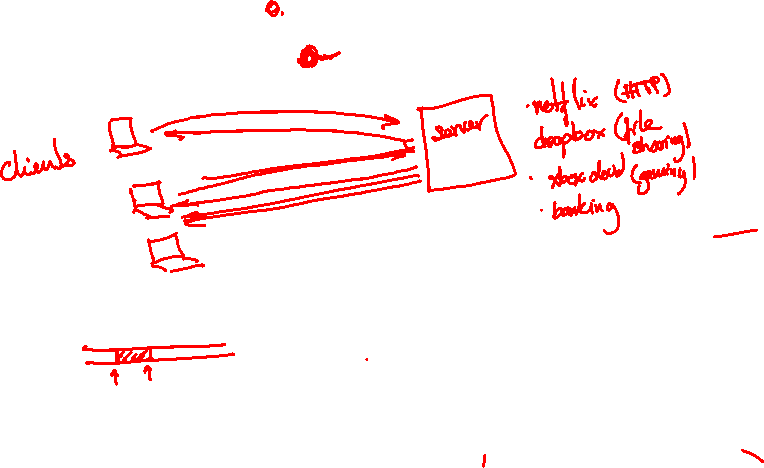 clients
server
· netflix (HTTP)
dropbox (file
sharing)
· xbox cloud (gaming)
· banking